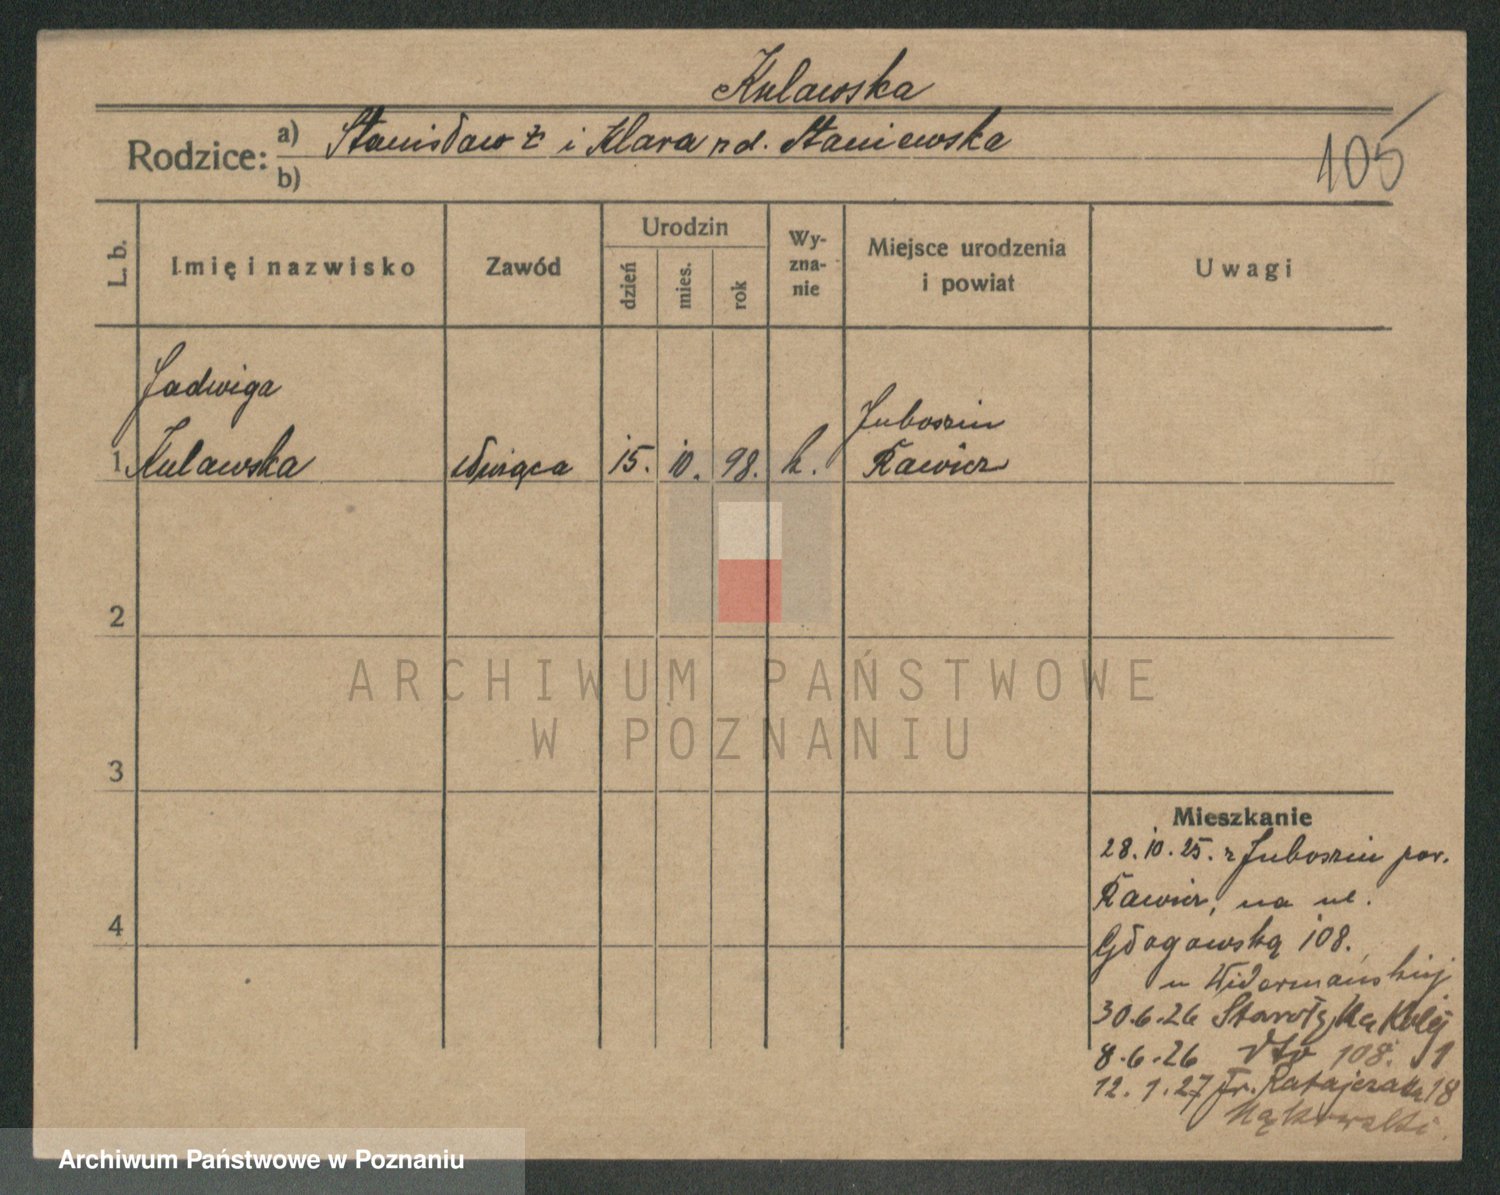 Kulawska
Rodzice: a) Stanisław ż i Klara z d. Staniewska
b)
105
L. b.
Imię i nazwisko
Zawód
Urodzin
dzień
mies.
rok
Wy-
zna-
nie
Miejsce urodzenia
i powiat
Uwagi
Jadwiga
1 Kulawska
służąca
15. 10. 98. k.
Juboszin
Rawicz
2
3
4
ARCHIWUM PAŃSTWOWE
W POZNANIU
Mieszkanie
28.10.25. z Juboszin pow.
Rawicz, na ul.
Głogowską 108.
u
30.6.26
8.6.26 dto 108.
12.1.27 Fr. Ratajczaka 18
Archiwum Państwowe w Poznaniu